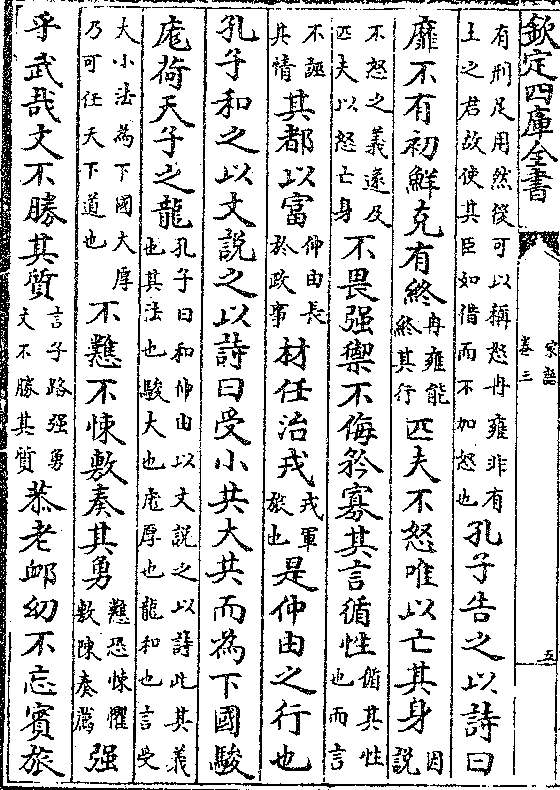 欽定四庫全書
家語
卷三
五
有刑足用然後可以稱怒冉雍非有
土之君故使其臣如借而不加怒也
孔子告之以詩曰
靡不有初鮮克有終
冉雍能
終其行
匹夫不怒唯以亡其身
因
說
不怒之義遂及
匹夫以怒亡身
不畏强禦不侮矜寡其言循性
循其性
也而言
不誣
其情
其都以富
仲由長
於政事
材任治戎
戎軍
旅也
是仲由之行也
孔子和之以文說之以詩曰受小共大共而為下國駿
庬荷天子之龍
孔子曰和仲由以文說之以詩此其義
也共法也駿大也庬厚也龍和也言受
大小法為下國大厚
乃可任天下道也
不戁不悚敷奏其勇
戁恐悚懼
敷陳奏薦
强
乎武哉文不勝其質
言子路强勇
文不勝其質
恭老卹幼不忘賓旅